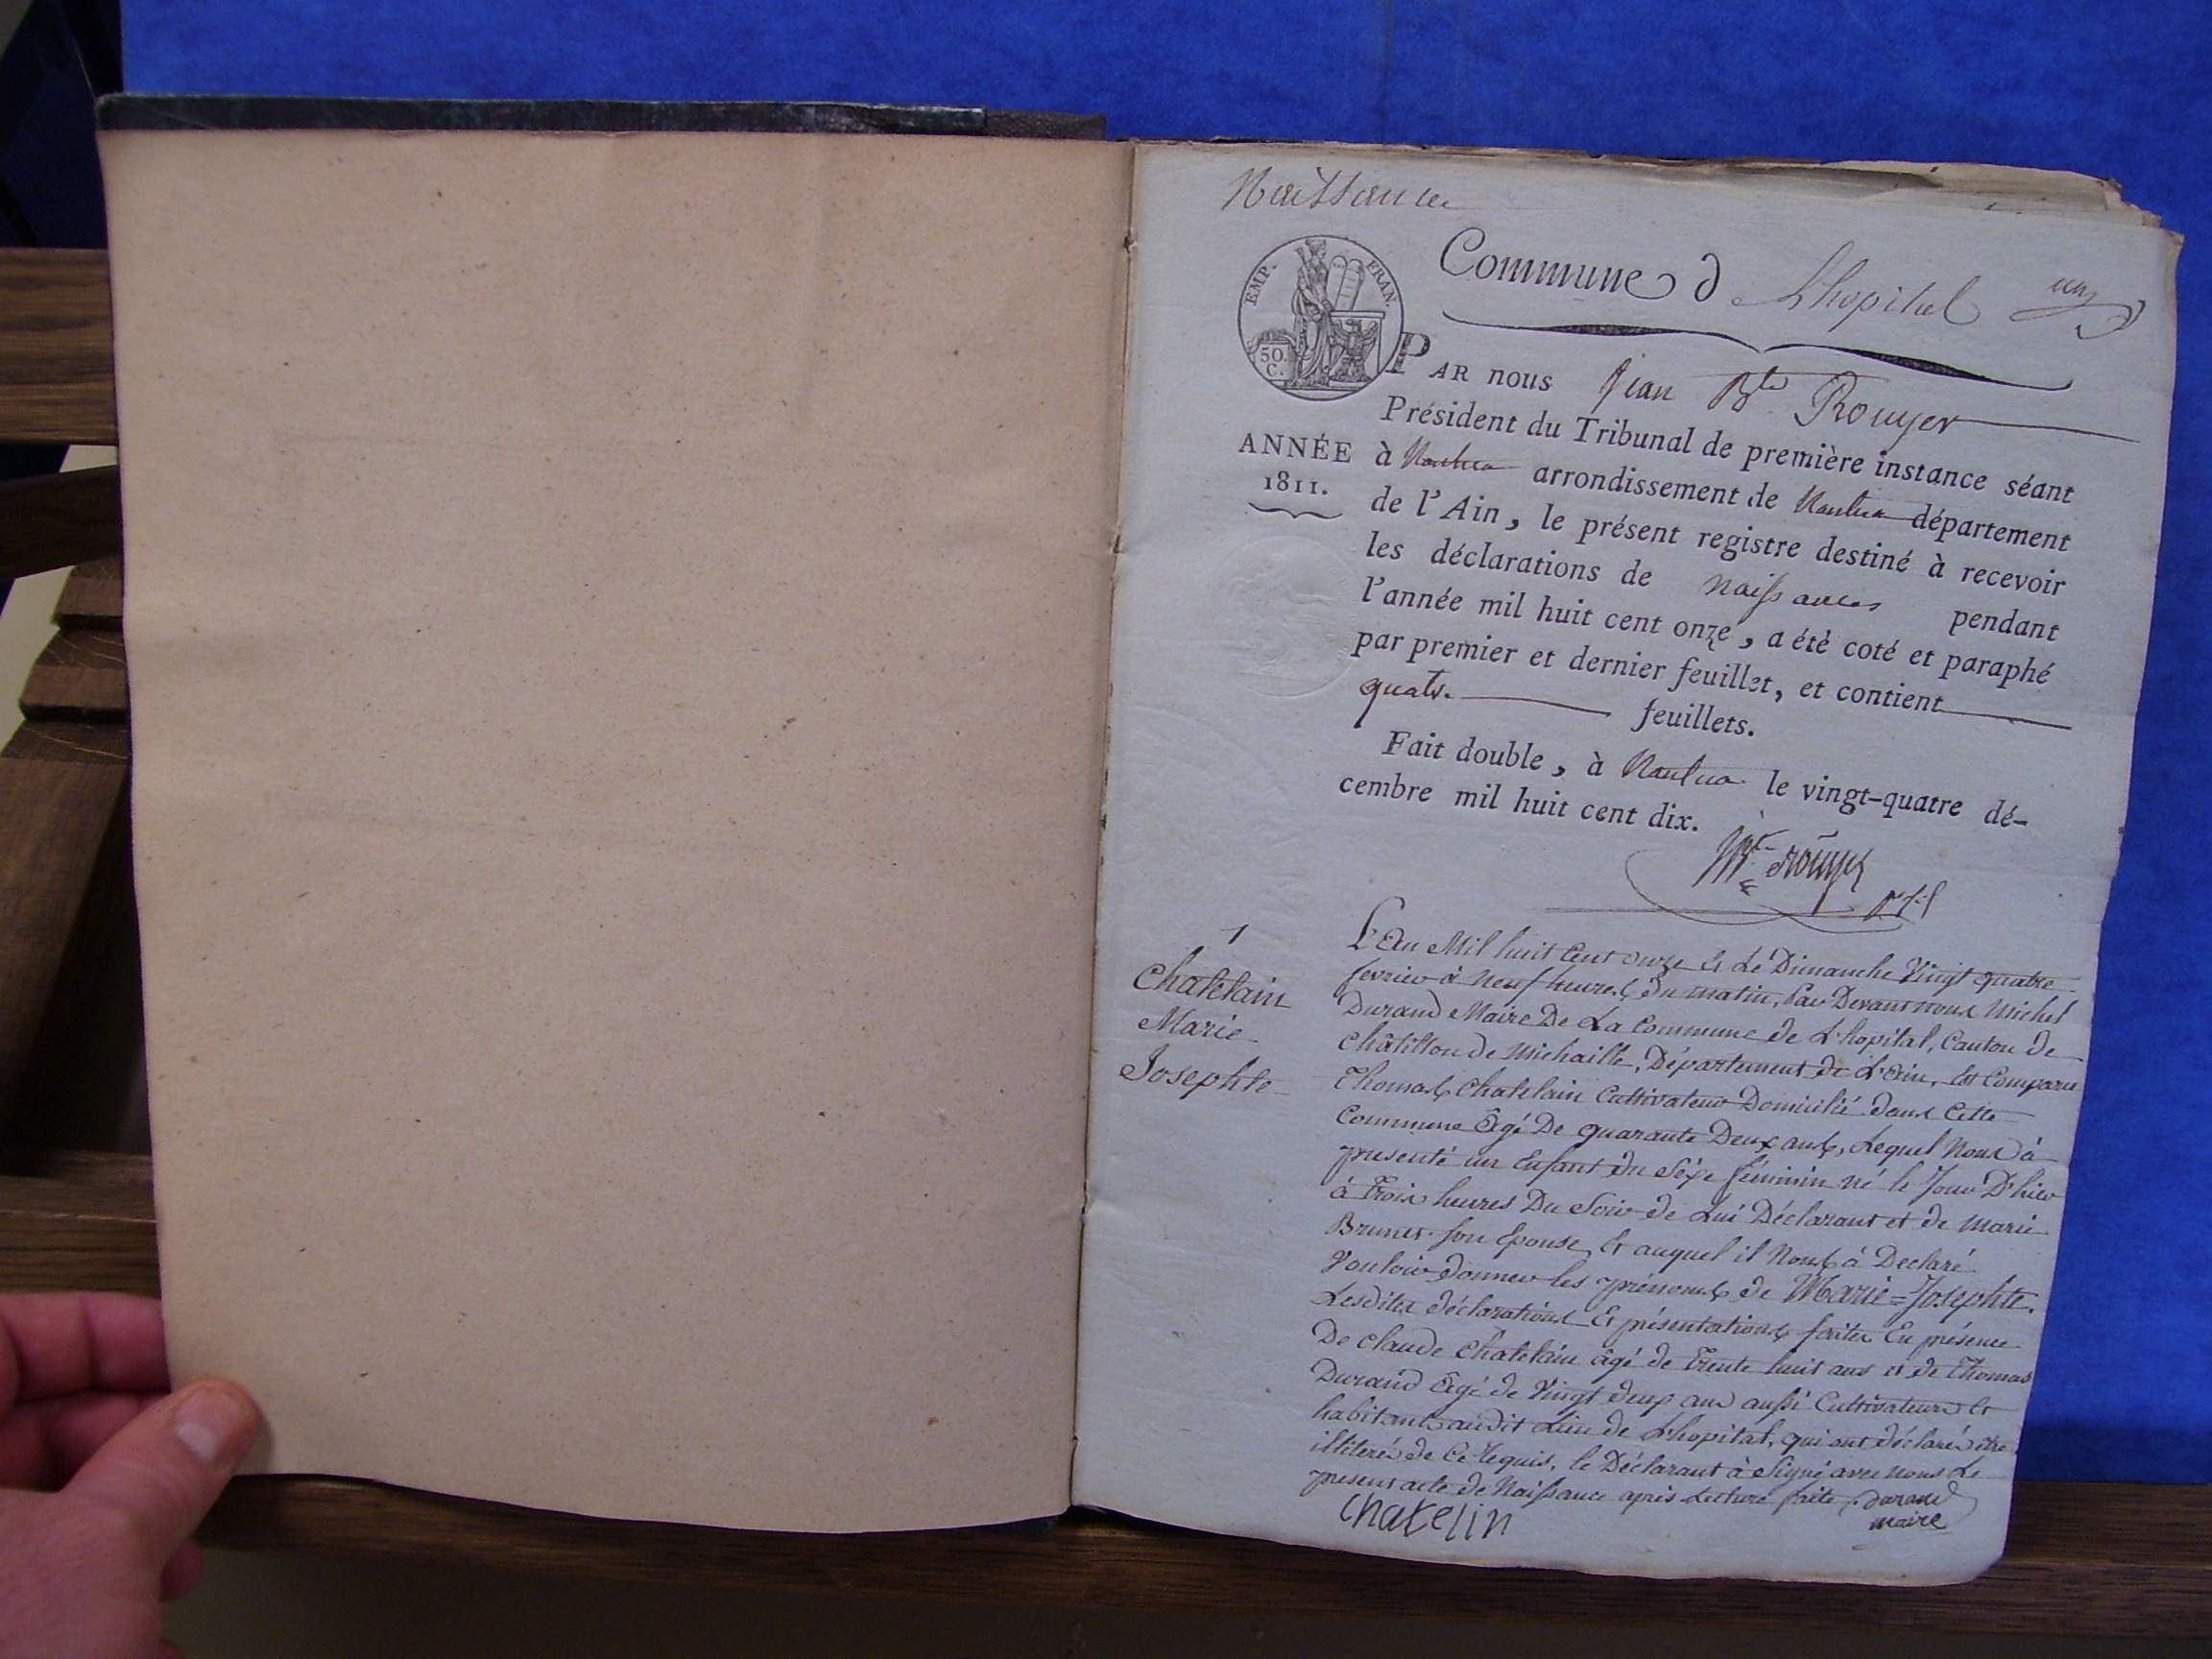 Naissance
Commune d Lhopital un
EMP. FRAN.
50.
C.
PAR nous Jean Bte Rouyer
Président du Tribunal de première instance séant
ANNÉE
1811.
à Nantua arrondissement de Nantua département
de l'Ain, le présent registre destiné à recevoir
les déclarations de Naissances pendant
l'année mil huit cent onze, a été coté et paraphé
par premier et dernier feuillet, et contient
quatr. feuillets.
Fait double, à Nantua le vingt-quatre dé-
cembre mil huit cent dix.
Rouyer
1
Chatelain
Marie
Josephte
L'An Mil huit Cent onze & Le Dimanche Vingt quatre
fevrier à Neuf heures du matin, Par Devant nous Michel
Durand Maire De La Commune de L'hopital, Canton de
Châtillon de Michaille, Département de L'Ain, Est Comparu
Thomas Chatelain Cultivateur Domicilié dans Cette
Commune Âgé De quarante Deux ans, Lequel Nous à
presenté un Enfant du Sexe féminin né le Jour D'hier
à Trois heures Du Soir de Lui Déclarant et de Marie
Brunet son Epouse, Et auquel il Nous à Declaré
Vouloir donner les prénoms de Marie=Josephte.
Lesdites déclarations Et présentations faites En présence
De Claude Chatelain âgé de Trente huit ans et de Thomas
Durand Âgé de Vingt deux ans aussi Cultivateurs Et
habitants audit Lieu de Lhopital, qui ont déclarés être
illiterés de Ce Requis, le Déclarant à Signé avec nous Le
present acte de Naissance après Lecture faite. Durand
Chatelin maire